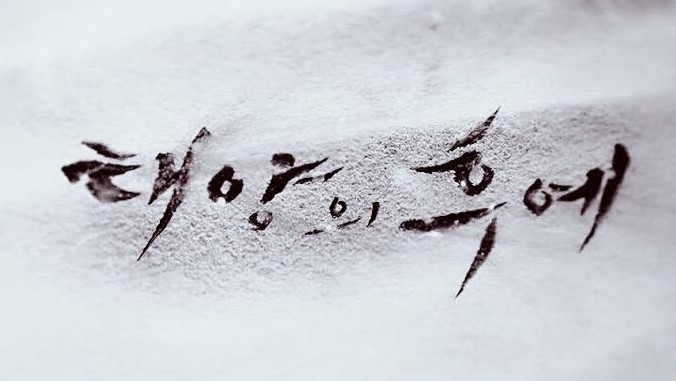 태양의 후예